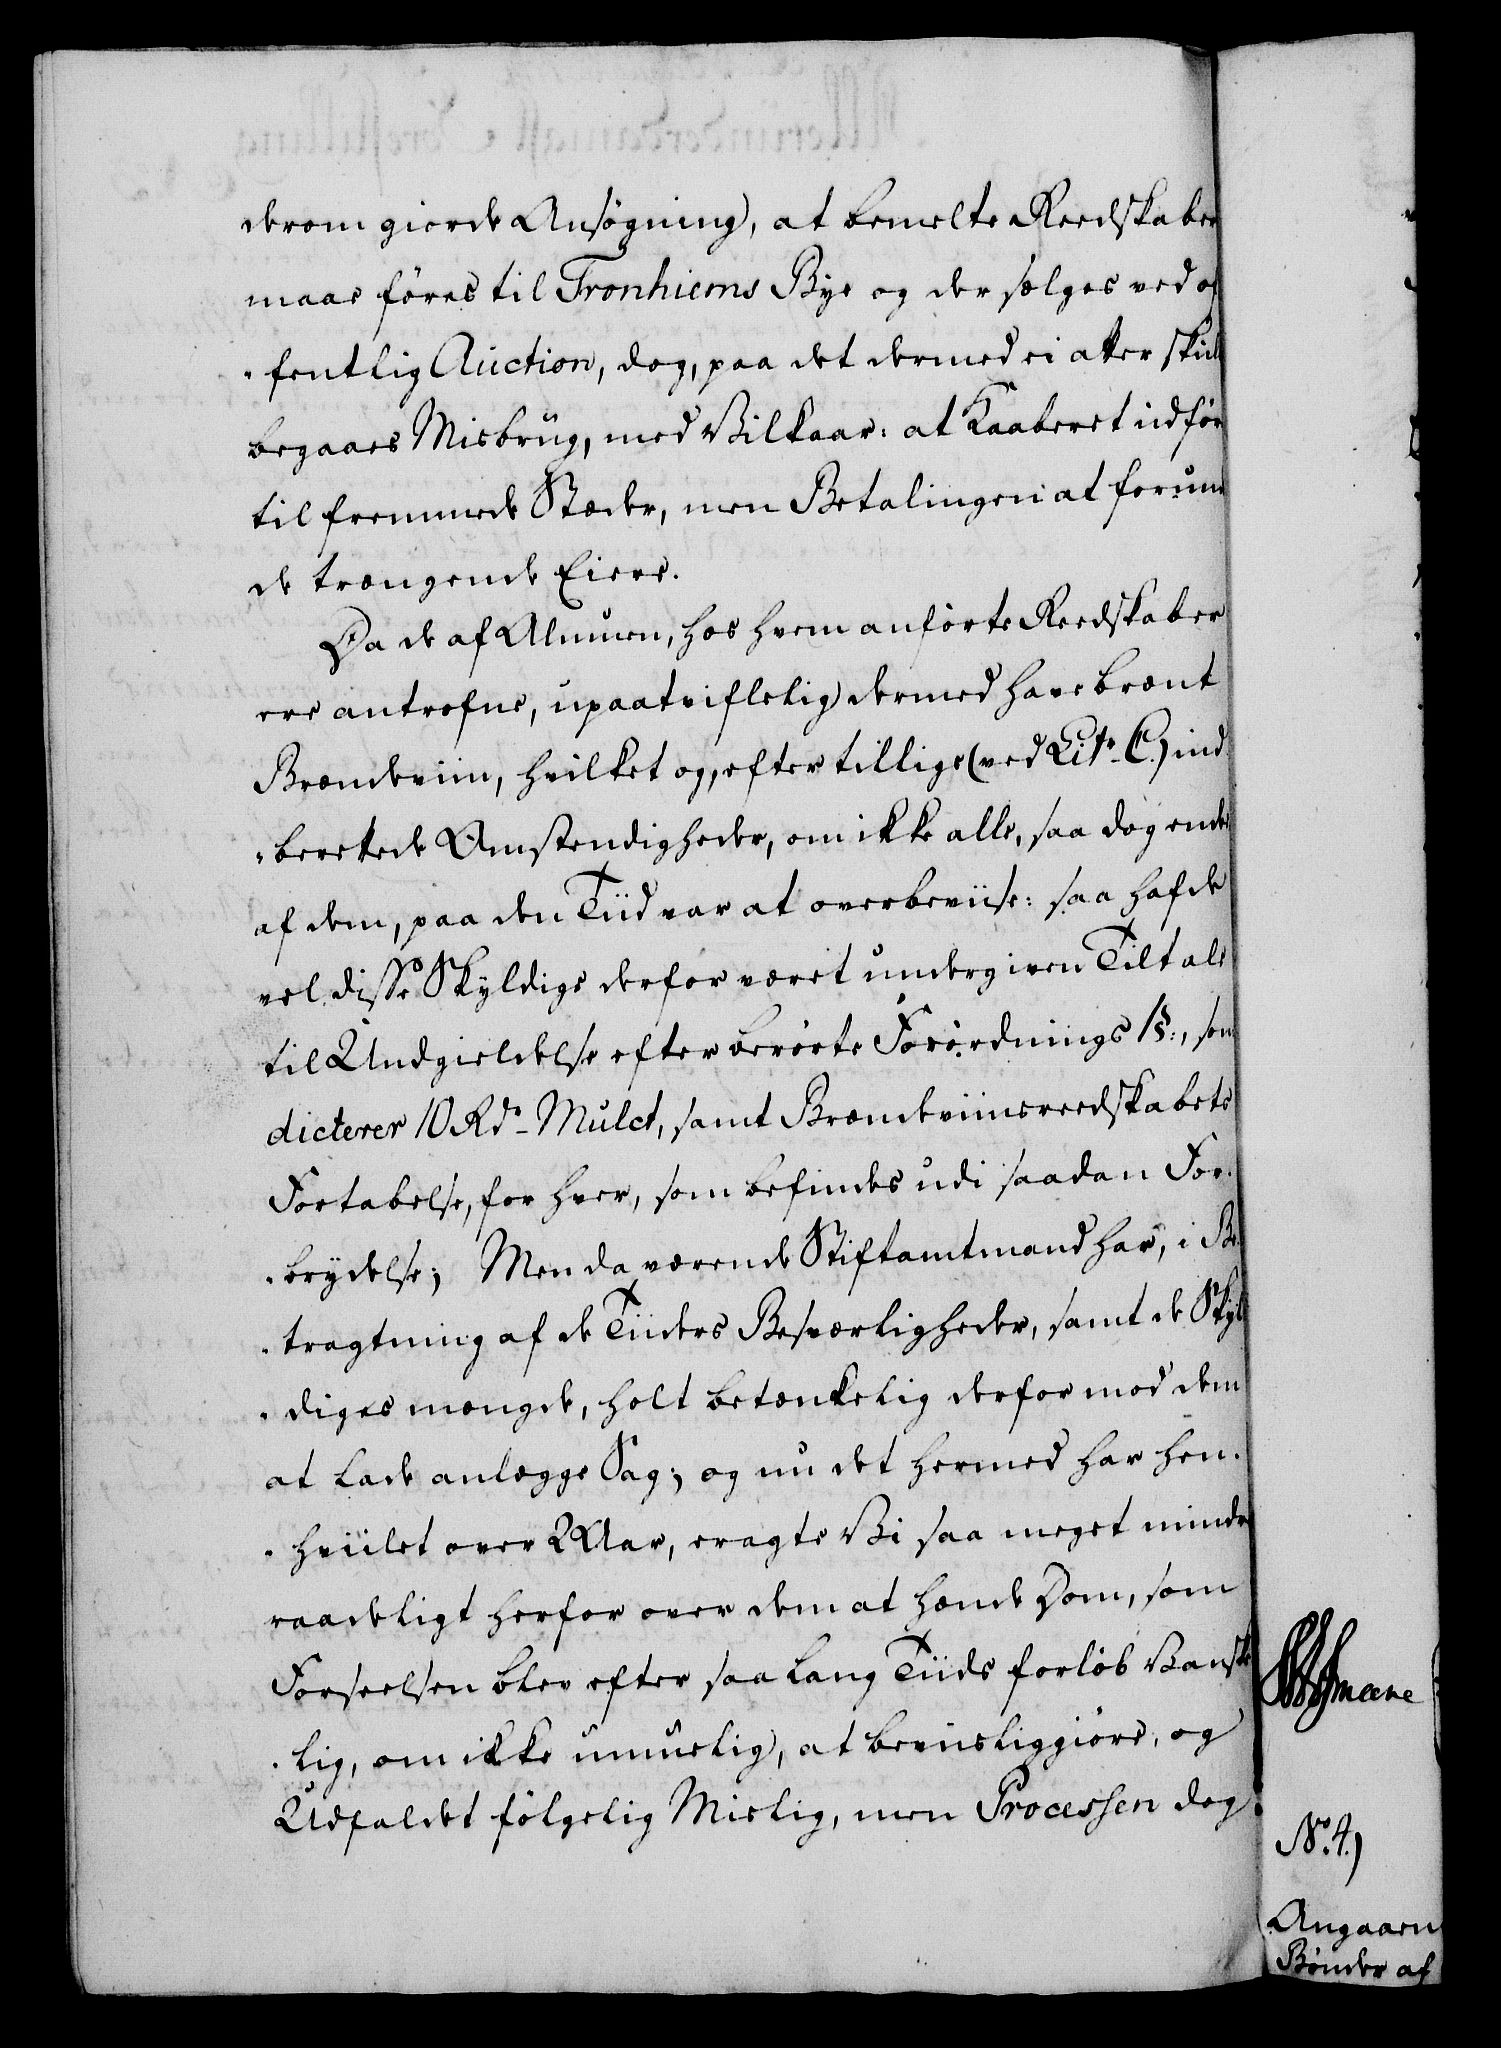 derom giorde Ansøgning, at bemelte Reedskaber
maae føres til Tronhiems Bye og der sælges ved of
fentlig Auction, dog, paa det dermed ei atter skul
begaaes Misbrug, med Vilkaar: at Kaaberet udfør
til fremmede Stæder, men Betalingen at forund
de trængende Eiere.
Da de af Almuen, hos hvem anførte Reedskaber
ere antrefne, upaatvivlelig dermed have brænt
Brændeviin, hvilket og, efter tillige (ved Litr. C.) ind
berettede Omstændigheder, om ikke alle, saa dog endel
af dem, paa den Tiid var at overbeviise: saa hafde
vel disse Skyldige derfor været undergiven Tiltale
til Undgieldelse efter berørte Forordnings 1§:, som
dicterer 10 Rdr. Mulct, samt Brændeviinsreedskabets
Fortabelse, for hver, som befindes udi saadan For-
brydelse; Men da værende Stiftamtmand har, i Be-
tragtning af de Tiiders Besværligheder, samt de Skyl
diges mængde, holt betænkelig derfor mod dem
at lade anlægge Sag; og nu det hermed har hen-
hviilet over 2 Aar, eragte Vi saa meget mindre
raadeligt herfor over dem at hænde Dom, som
Forseelsen blev efter saa lang Tiids forløb Vanske
lig, om ikke umuelig, at beviisliggiøre, og
Udfaldet følgelig Mislig, men Processen dog
No. 4.)
Angaaen
Bønder af